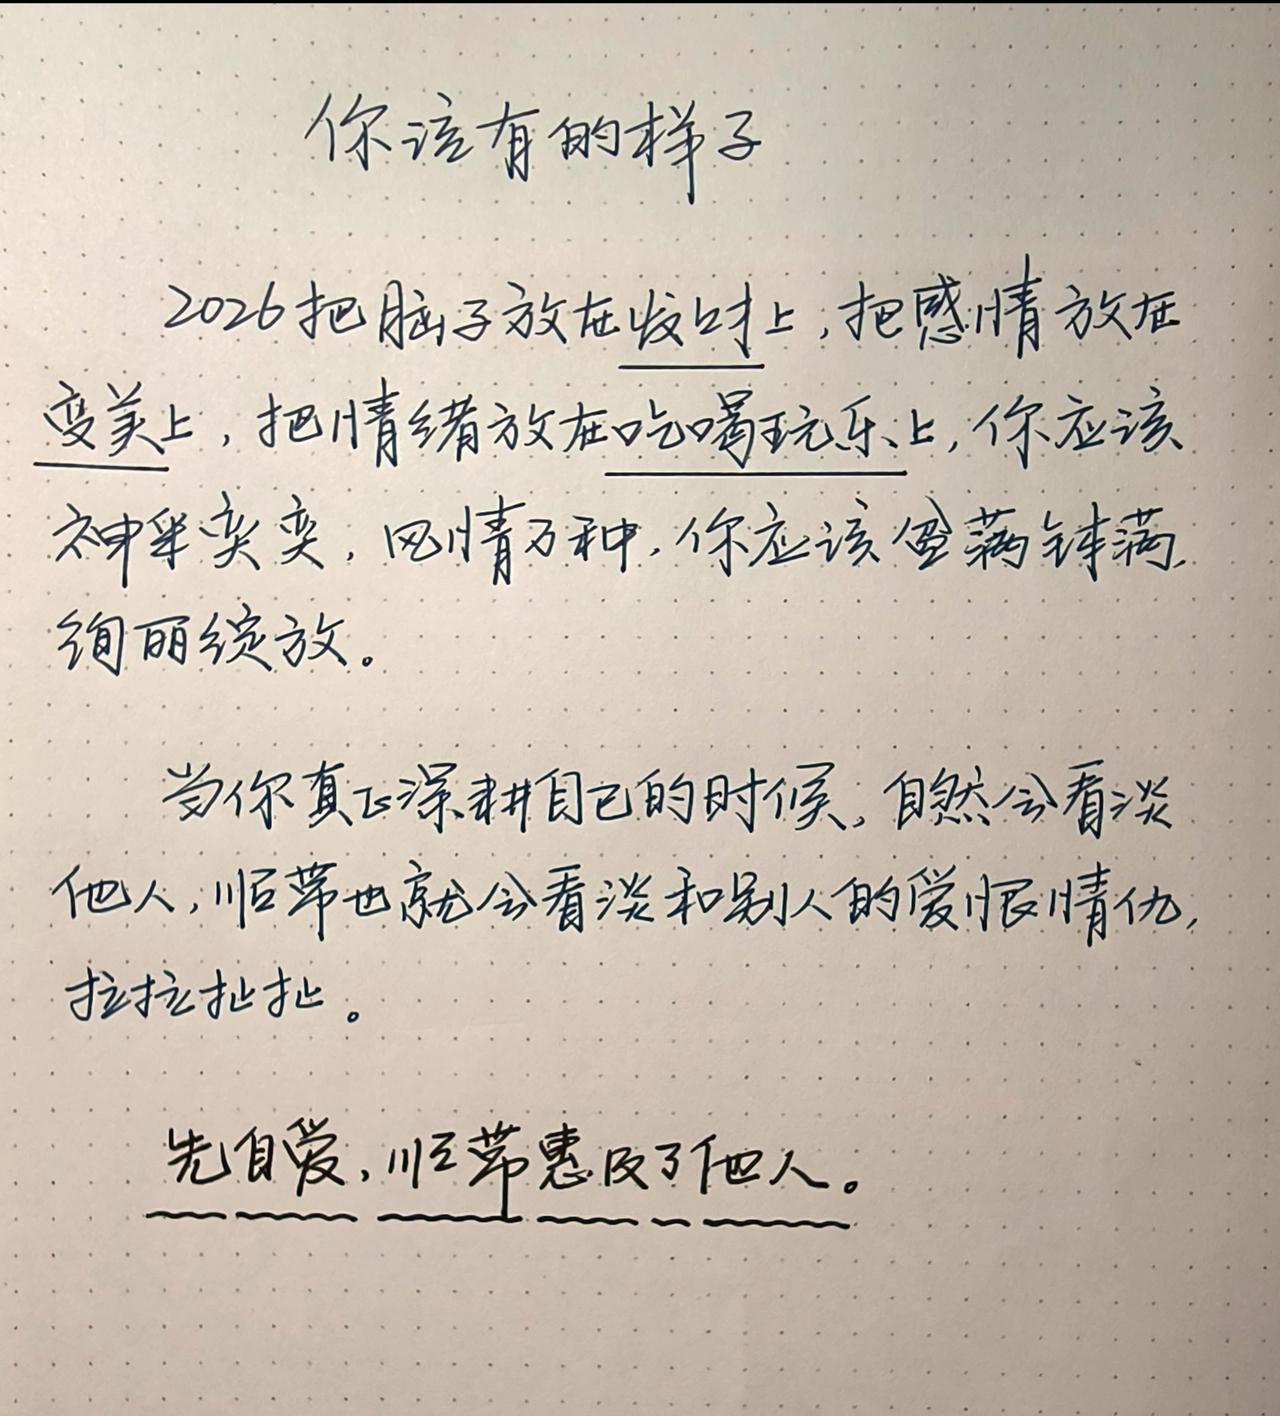 你该有的样子
2026把脑子放在发财上，把感情放在
变美上，把情绪放在吃喝玩乐上，你应该
神采奕奕，风情万种，你应该盆满钵满，
绚丽绽放。
当你真正深耕自己的时候，自然会看淡
他人，顺带也就会看淡和别人的爱恨情仇，
拉拉扯扯。
先自爱，顺带惠及了他人。